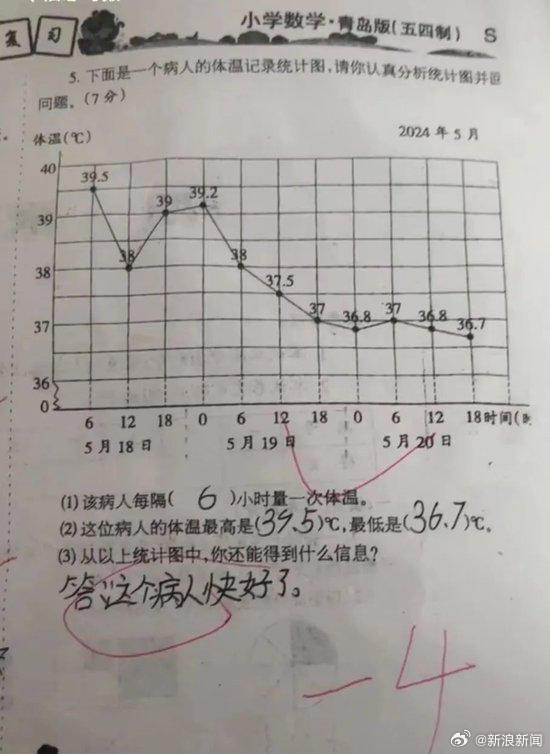 复习
小学数学·青岛版(五四制) S
5. 下面是一个病人的体温记录统计图,请你认真分析统计图并回
问题。(7分)
体温(℃)
2024年5月
40
39.5
39.2
39
39
38
38
38
37.5
37
37
37
36.8
36.8
36.7
36
0
6 12 18 0 6 12 18 0 6 12 18 时间(时
5月18日 5月19日 5月20日
(1)该病人每隔( 6 )小时量一次体温。
(2)这位病人的体温最高是(39.5)℃,最低是(36.7)℃。
(3)从以上统计图中,你还能得到什么信息?
答:这个病人快好了。
-4
@新浪新闻